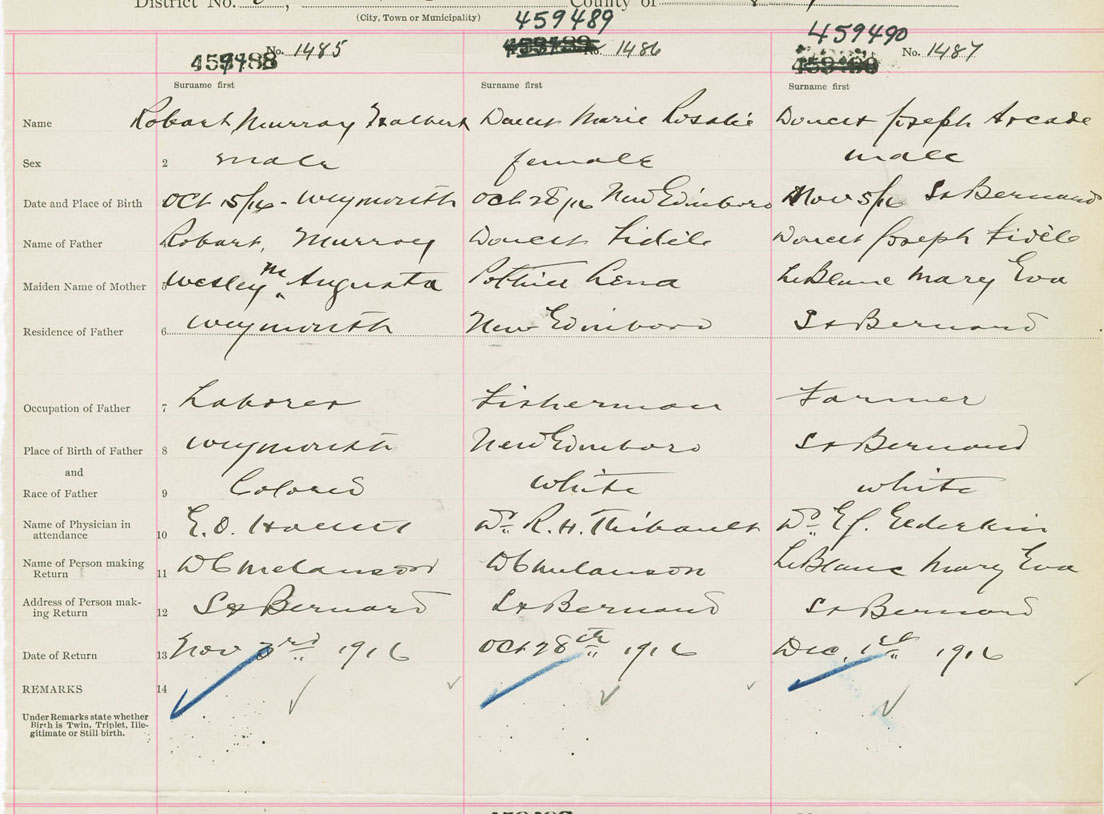 District No. County of
(City, Town or Municipality)
459488 No. 1485 459489 No. 1486 459490 No. 1487
Surname first Surname first Surname first
Name Robart Murray Doucet Marie Rosalie Doucet Joseph Arcade
Sex 2 male female male
Date and Place of Birth Oct 5/16 - Weymouth Oct 28/16 New Edinboro Nov 5/16 St Bernard
Name of Father Robart, Murray Doucet Fidèle Doucet Joseph Fidèle
Maiden Name of Mother 5 Wesley M Augusta Pothier Lena LeBlanc Mary Eva
Residence of Father 6 Weymouth New Edinboro St Bernard
Occupation of Father 7 Laborer Fisherman Farmer
Place of Birth of Father 8 Weymouth New Edinboro St Bernard
and
Race of Father 9 Colored white white
Name of Physician in
attendance 10 E.O. Dr. R. H. Thibault Dr. E.J. Elderkin
Name of Person making
Return 11 W C Melanson W C Melanson LeBlanc Mary Eva
Address of Person mak-
ing Return 12 St Bernard St Bernard St Bernard
Date of Return 13 Nov 3rd 1916 Oct 28th 1916 Dec. 1st 1916
REMARKS 14
Under Remarks state whether
Birth is Twin, Triplet, Ille-
gitimate or Still birth.